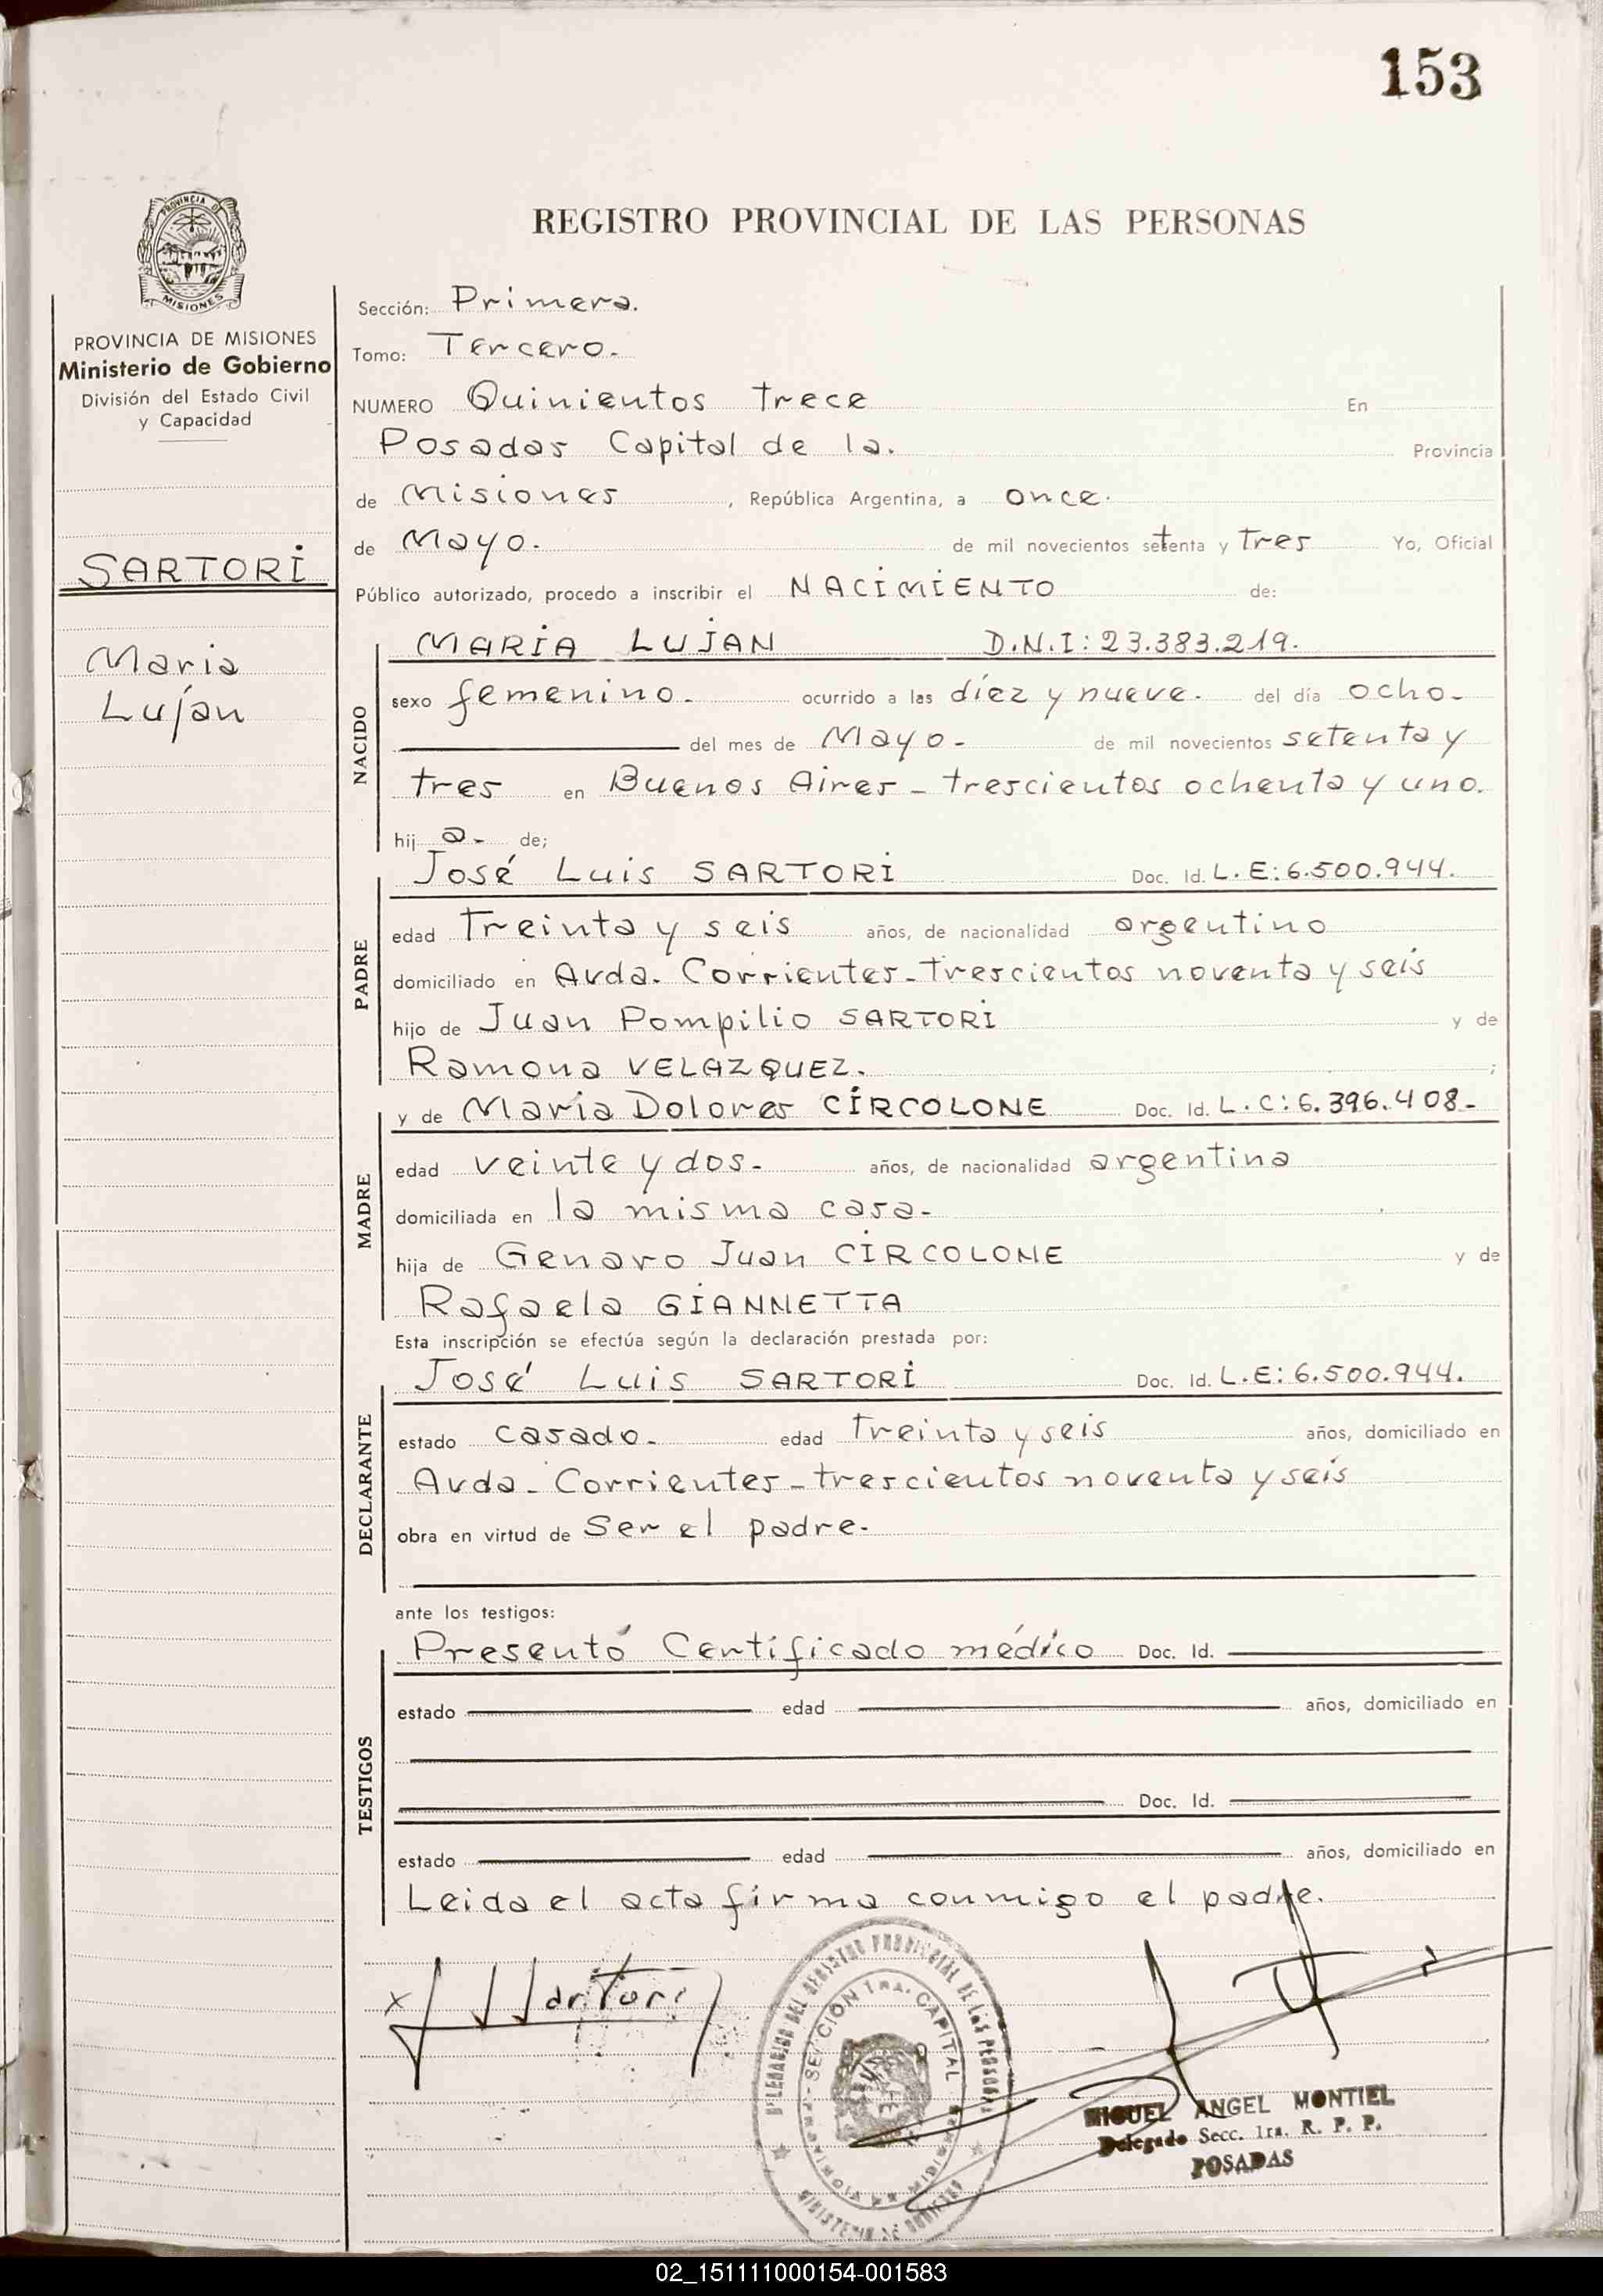 153
PROVINCIA DE
MISIONES
REGISTRO PROVINCIAL DE LAS PERSONAS
PROVINCIA DE MISIONES
Ministerio de Gobierno
División del Estado Civil
y Capacidad
SARTORI
Maria
Lujan
Sección: Primera.
Tomo: Tercero.
NUMERO Quinientos trece En
Posadas Capital de la. Provincia
de Misiones, República Argentina, a once.
de Mayo. de mil novecientos setenta y tres Yo, Oficial
Público autorizado, procedo a inscribir el NACIMIENTO de:
NACIDO
MARIA LUJAN D.N.I: 23.383.219.
sexo femenino. ocurrido a las díez y nueve. del día ocho-
del mes de Mayo- de mil novecientos setenta y
tres en Buenos Aires - trescientos ochenta y uno.
hij a- de;
PADRE
José Luis SARTORI Doc. Id. L.E: 6.500.944.
edad Treinta y seis años, de nacionalidad argentino
domiciliado en Avda. Corrientes-trescientos noventa y seis
hijo de Juan Pompilio SARTORI y de
Ramona VELAZQUEZ. ;
MADRE
y de Maria Dolores CIRCOLONE Doc. Id. L.C: 6.396.408-
edad veinte y dos- años, de nacionalidad argentina
domiciliada en la misma casa-
hija de Genaro Juan CIRCOLONE y de
Rafaela GIANNETTA
Esta inscripción se efectúa según la declaración prestada por:
DECLARANTE
José Luis SARTORI Doc. Id. L.E: 6.500.944.
estado casado- edad Treinta y seis años, domiciliado en
Avda- Corrientes-trescientos noventa y seis
obra en virtud de Ser el padre-
ante los testigos:
TESTIGOS
Presentó Certificado médico Doc. Id.
estado edad años, domiciliado en
Doc. Id.
estado edad años, domiciliado en
Leida el acta firma conmigo el padre.
x J Sartori
DELEGACION DEL REGISTRO PROVINCIAL DE LAS PERSONAS
SECCIÓN 1RA. CAPITAL
MINISTERIO DE GOBIERNO
MIGUEL ANGEL MONTIEL
Delegado Secc. 1ra. R. P. P.
POSADAS
02_151111000154-001583